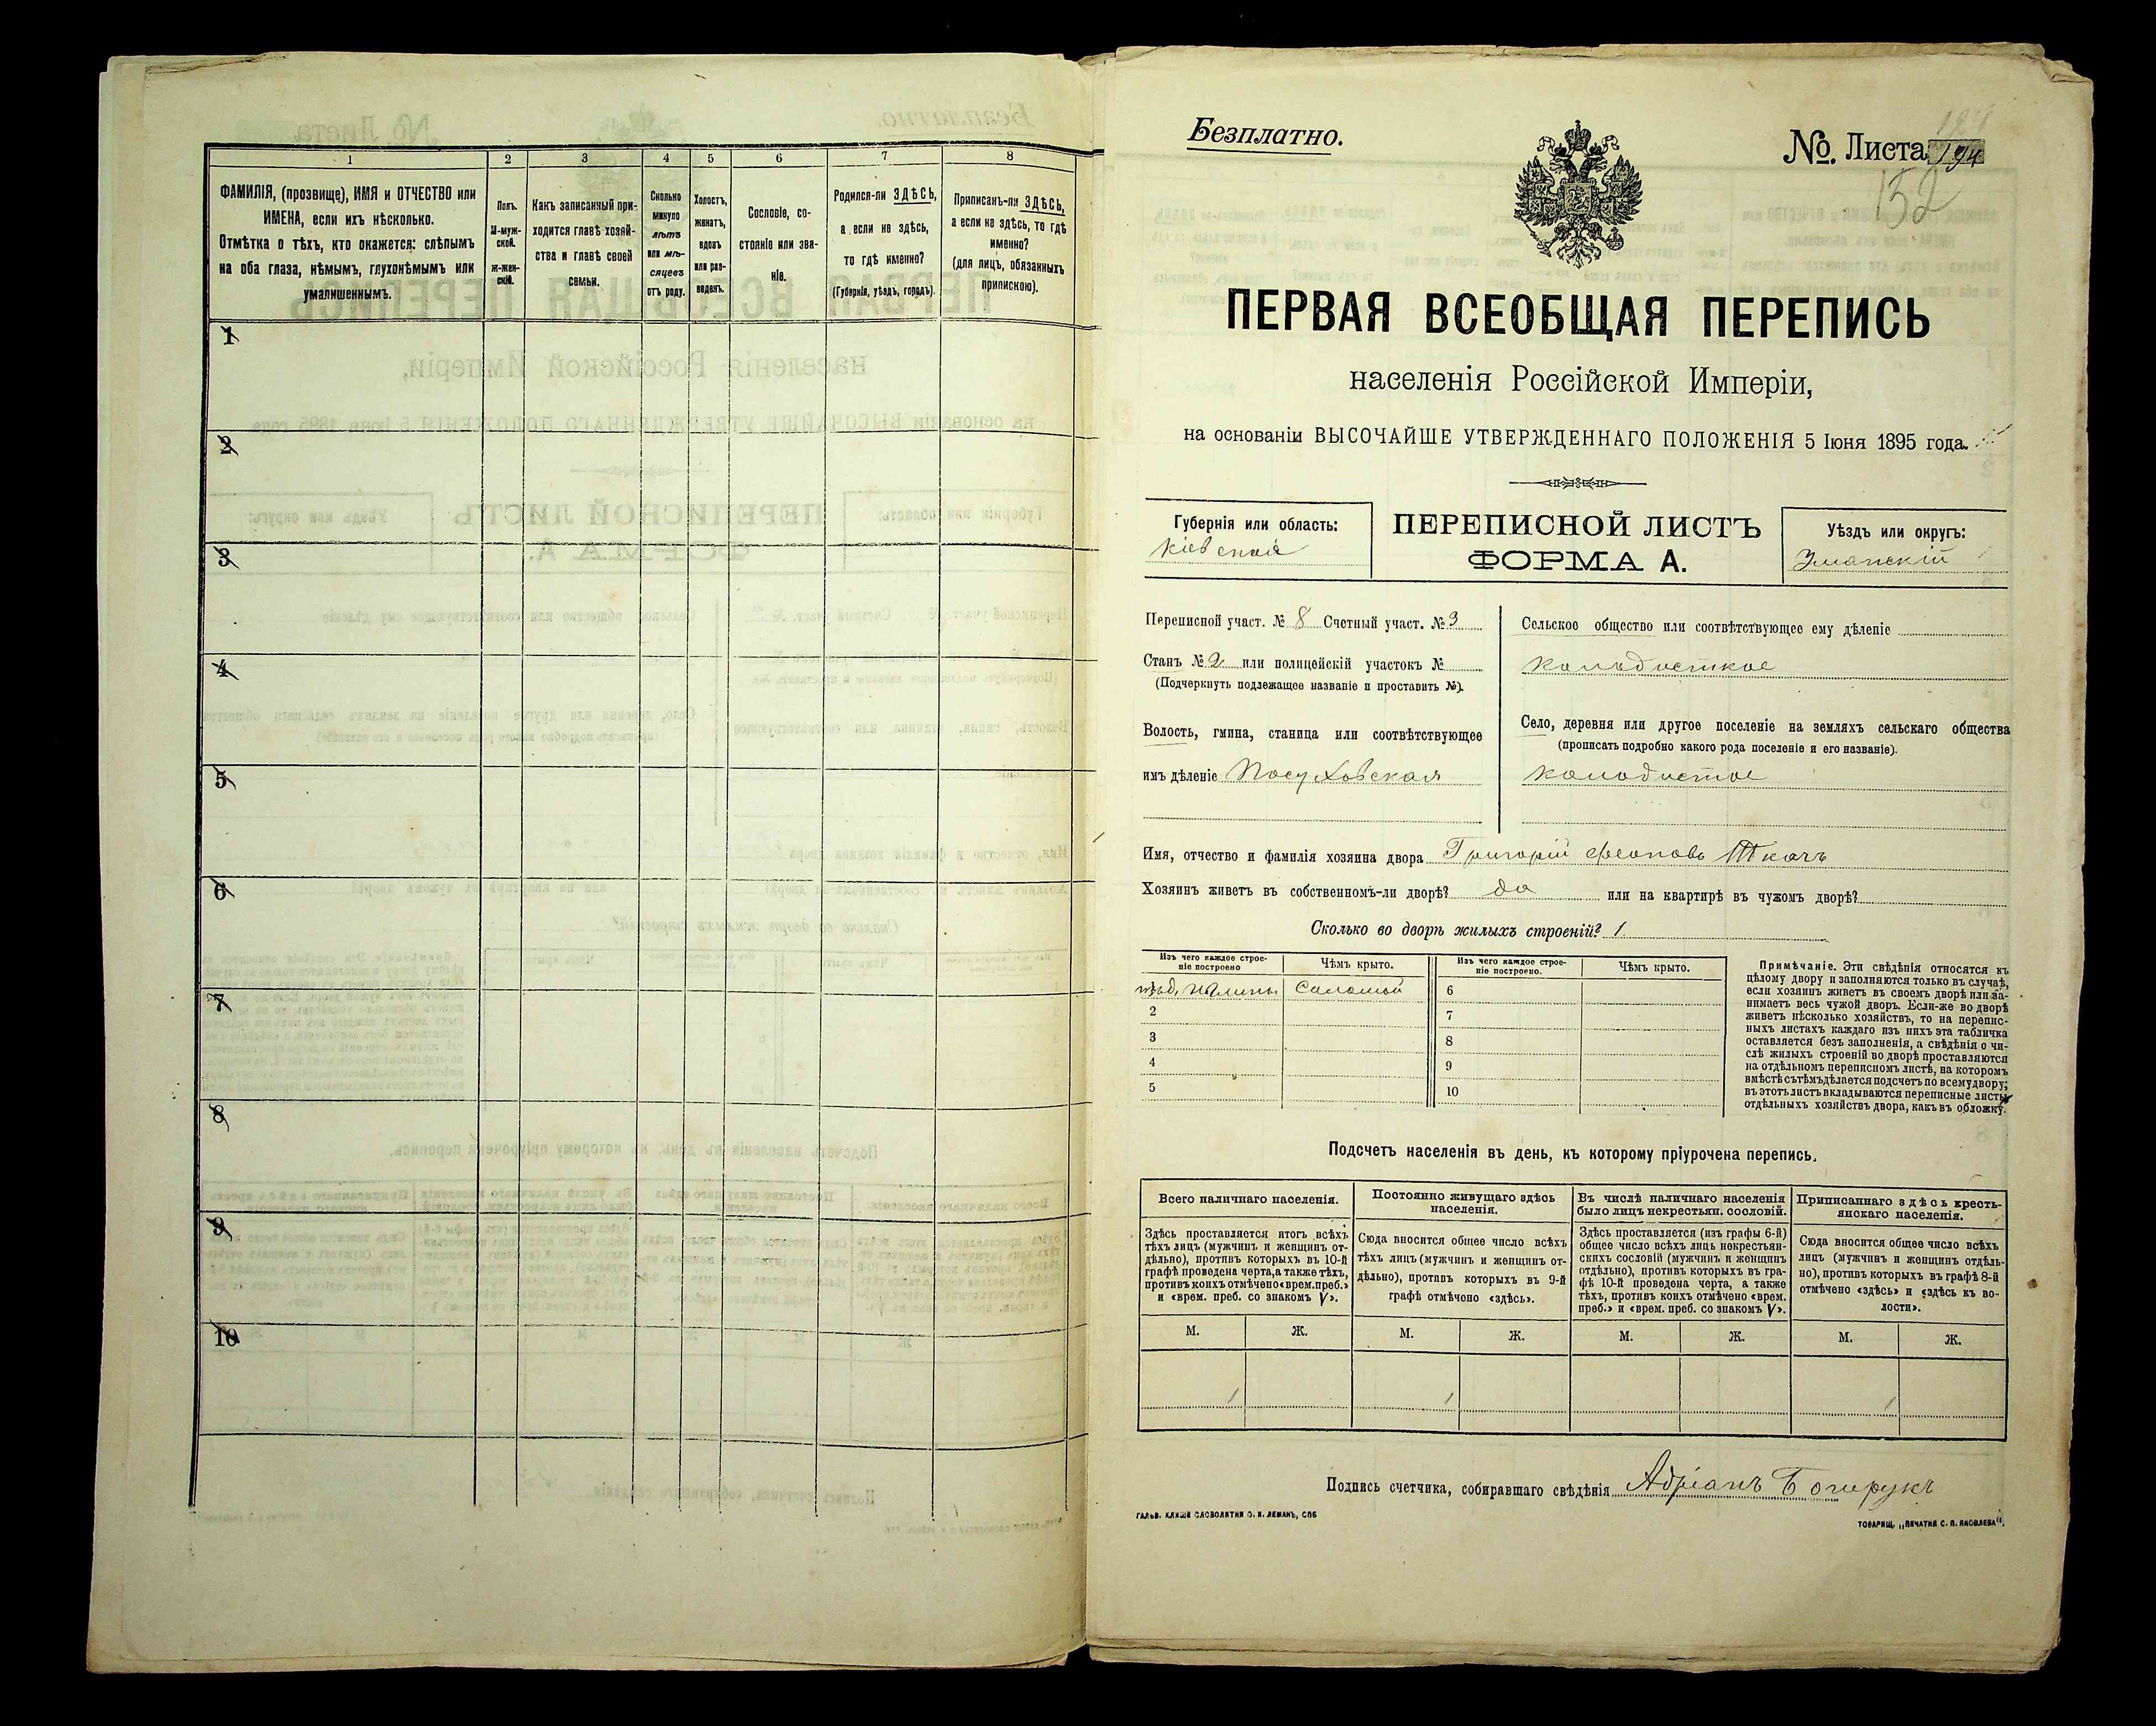 1
2
3
4
5
6
7
8
ФАМИЛІЯ, (прозвище), ИМЯ и ОТЧЕСТВО или
ИМЕНА, если ихъ нѣсколько.
Отмѣтка о тѣхъ, кто окажется: слѣпымъ
на оба глаза, нѣмымъ, глухонѣмымъ или
умалишеннымъ.
Полъ.
М-муж-
ской.
ж-жен-
скій.
Какъ записанный при-
ходится главѣ хозяй-
ства и главѣ своей
семьи.
Сколько
минуло
лѣтъ
или мѣ-
сяцевъ
отъ роду.
Холостъ,
женатъ,
вдовъ
или раз-
веденъ.
Сословіе, со-
стояніе или зва-
ніе.
Родился-ли ЗДѢСЬ,
а если не здѣсь,
то гдѣ именно?
(Губернія, уѣздъ, городъ).
Приписанъ-ли ЗДѢСЬ,
а если не здѣсь, то гдѣ
именно?
(для лицъ, обязанныхъ
припискою).
1
2
3
4
5
6
7
8
9
10
Безплатно.
№. Листа 194
152
ПЕРВАЯ ВСЕОБЩАЯ ПЕРЕПИСЬ
населенія Россійской Имперіи,
на основаніи ВЫСОЧАЙШЕ УТВЕРЖДЕННАГО ПОЛОЖЕНІЯ 5 Іюня 1895 года.
Губернія или область:
Кіевская
ПЕРЕПИСНОЙ ЛИСТЪ
ФОРМА А.
Уѣздъ или округъ:
Уманскій
Переписной участ. № 8 Счетный участ. № 3
Станъ № 2 или полицейскій участокъ №
(Подчеркнуть подлежащее названіе и проставить №).
Волость, гмина, станица или соотвѣтствующее
имъ дѣленіе Посуховская
Сельское общество или соотвѣтствующее ему дѣленіе
Колодисткое
Село, деревня или другое поселеніе на земляхъ сельскаго общества
(прописать подробно какого рода поселеніе и его названіе).
Колодистое
Имя, отчество и фамилія хозяина двора Григорій Ткачъ
Хозяинъ живетъ въ собственномъ-ли дворѣ? да или на квартирѣ въ чужомъ дворѣ?
Сколько во дворѣ жилыхъ строеній? 1
Изъ чего каждое строе-
ніе построено
Чѣмъ крыто.
Изъ чего каждое строе-
ніе построено.
Чѣмъ крыто.
глины Соломой
2
3
4
5
6
7
8
9
10
Примѣчаніе. Эти свѣдѣнія относятся къ
цѣлому двору и заполняются только въ случаѣ,
если хозяинъ живетъ въ своемъ дворѣ или за-
нимаетъ весь чужой дворъ. Если-же во дворѣ
живетъ нѣсколько хозяйствъ, то на перепис-
ныхъ листахъ каждаго изъ нихъ эта табличка
оставляется безъ заполненія, а свѣдѣнія о чи-
слѣ жилыхъ строеній во дворѣ проставляются
на отдѣльномъ переписномъ листѣ, на которомъ
вмѣстѣ съ тѣмъ дѣлается подсчетъ по всему двору;
въ этотъ листъ вкладываются переписные листы
отдѣльныхъ хозяйствъ двора, какъ въ обложку.
Подсчетъ населенія въ день, къ которому пріурочена перепись.
Всего наличнаго населенія.
Здѣсь проставляется итогъ всѣхъ
тѣхъ лицъ (мужчинъ и женщинъ от-
дѣльно), противъ которыхъ въ 10-й
графѣ проведена черта, а также тѣхъ,
противъ коихъ отмѣчено «врем. преб.»
и «врем. преб. со знакомъ V».
Постоянно живущаго здѣсь
населенія.
Сюда вносится общее число всѣхъ
тѣхъ лицъ (мужчинъ и женщинъ от-
дѣльно), противъ которыхъ въ 9-й
графѣ отмѣчено «здѣсь».
Въ числѣ наличнаго населенія
было лицъ некрестьян. сословій.
Здѣсь проставляется (изъ графы 6-й)
общее число всѣхъ лицъ некрестьян-
скихъ сословій (мужчинъ и женщинъ
отдѣльно), противъ которыхъ въ гра-
фѣ 10-й проведена черта, а также
тѣхъ, противъ коихъ отмѣчено «врем.
преб.» и «врем. преб. со знакомъ V».
Приписаннаго здѣсь кресть-
янскаго населенія.
Сюда вносится общее число всѣхъ
лицъ (мужчинъ и женщинъ отдѣль-
но), противъ которыхъ въ графѣ 8-й
отмѣчено «здѣсь» и «здѣсь къ во-
лости».
М. Ж. М. Ж. М. Ж. М. Ж.
1 1 1
Подпись счетчика, собиравшаго свѣдѣнія Адріанъ
ГАЛЬВ. КЛИШЕ СЛОВОЛИТНИ О. И. ЛЕМАНЪ, СПБ
ТОВАРИЩ. „ПЕЧАТНЯ С. П. ЯКОВЛЕВА".